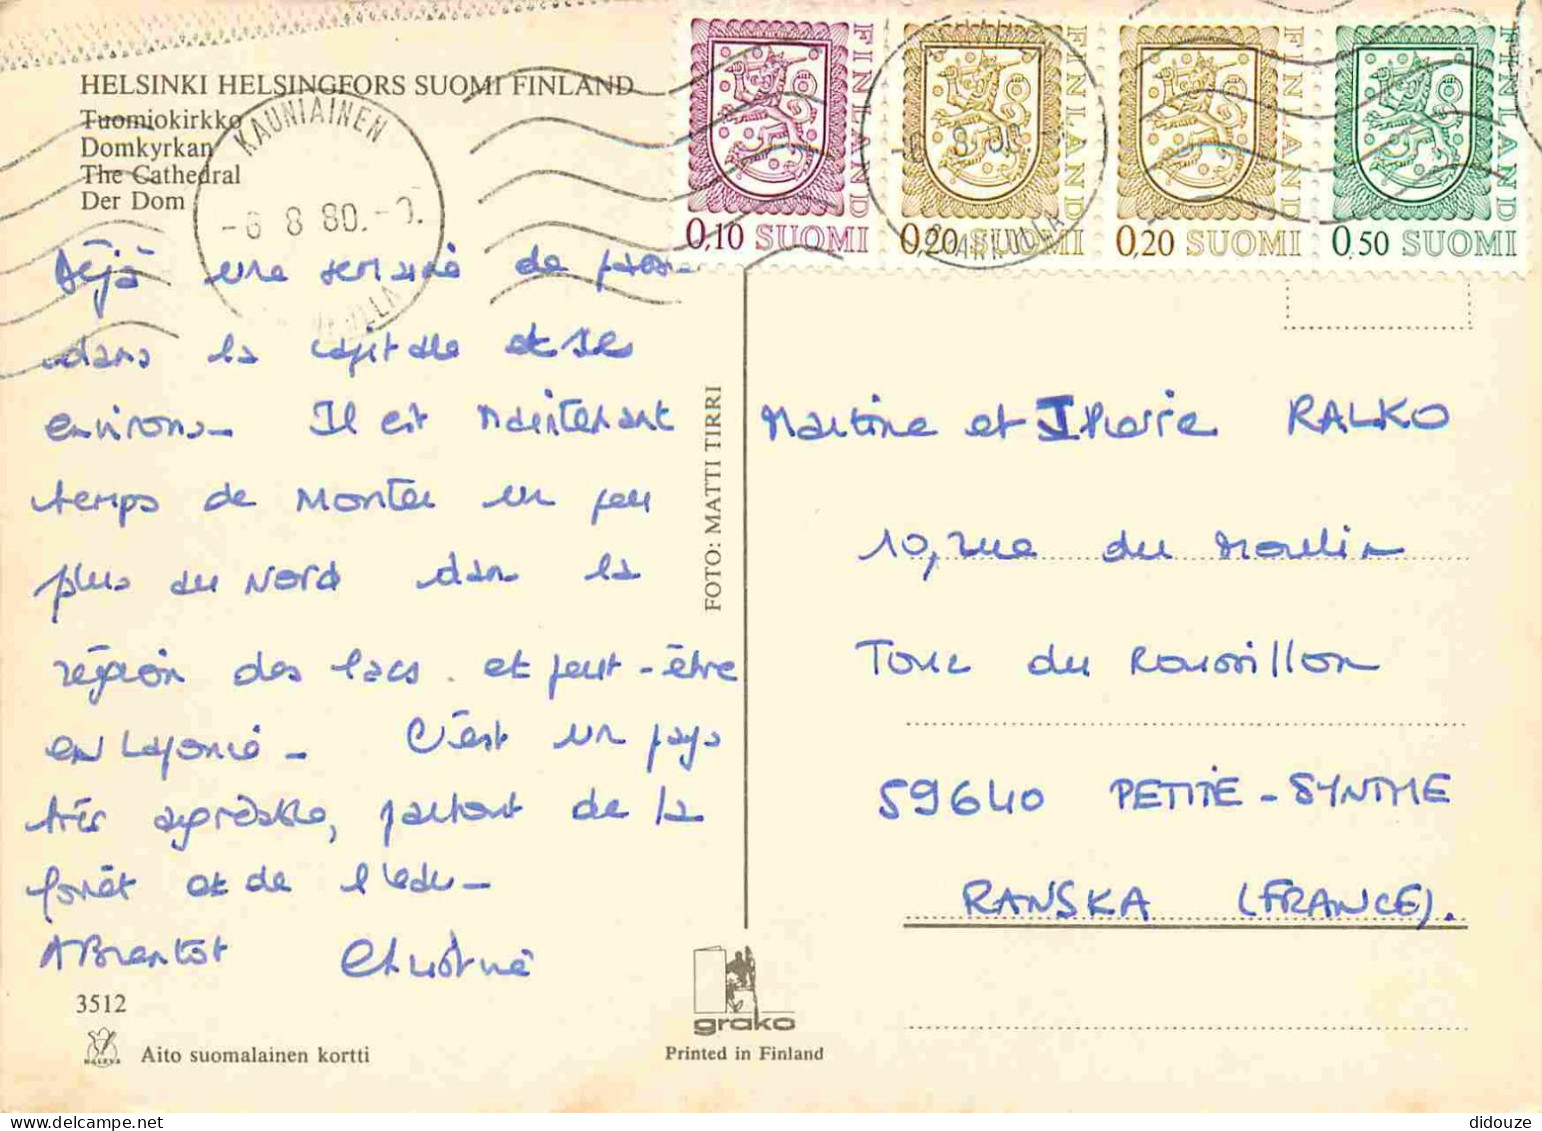 HELSINKI HELSINGFORS SUOMI FINLAND
Tuomiokirkko
Domkyrkan
The Cathedral
Der Dom
KAUNIAINEN
-6 8 80.-
FINLAND
0,10 SUOMI
FINLAND
0,20 SUOMI
FINLAND
0,20 SUOMI
FINLAND
0,50 SUOMI
Déjà une semaine de
dans la capitale et ses
environs. Il est maintenant
temps de monter un peu
plus au Nord dans la
région des lacs. et peut-être
en Laponie. C'est un pays
très agréable, partout de la
forêt et de l'eau.
A Bientôt Christine
3512
Aito suomalainen kortti
FOTO: MATTI TIRRI
grako
Printed in Finland
Martine et Pierre RALKO
10, rue du Moulin
Tour du Roussillon
59640 PETITE-SYNTHE
RANSKA (FRANCE).
didouze